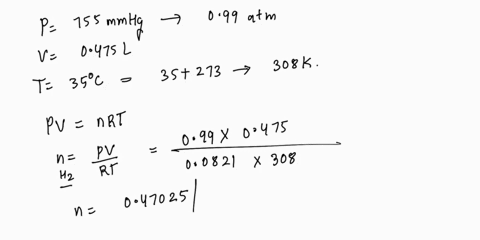 P= 755 mmHg → 0.99 atm
V= 0.475 L
T= 35°C = 35+273 → 308K.
PV = nRT
n = PV/RT = 0.99 X 0.475 / 0.0821 X 308
H2
n = 0.47025